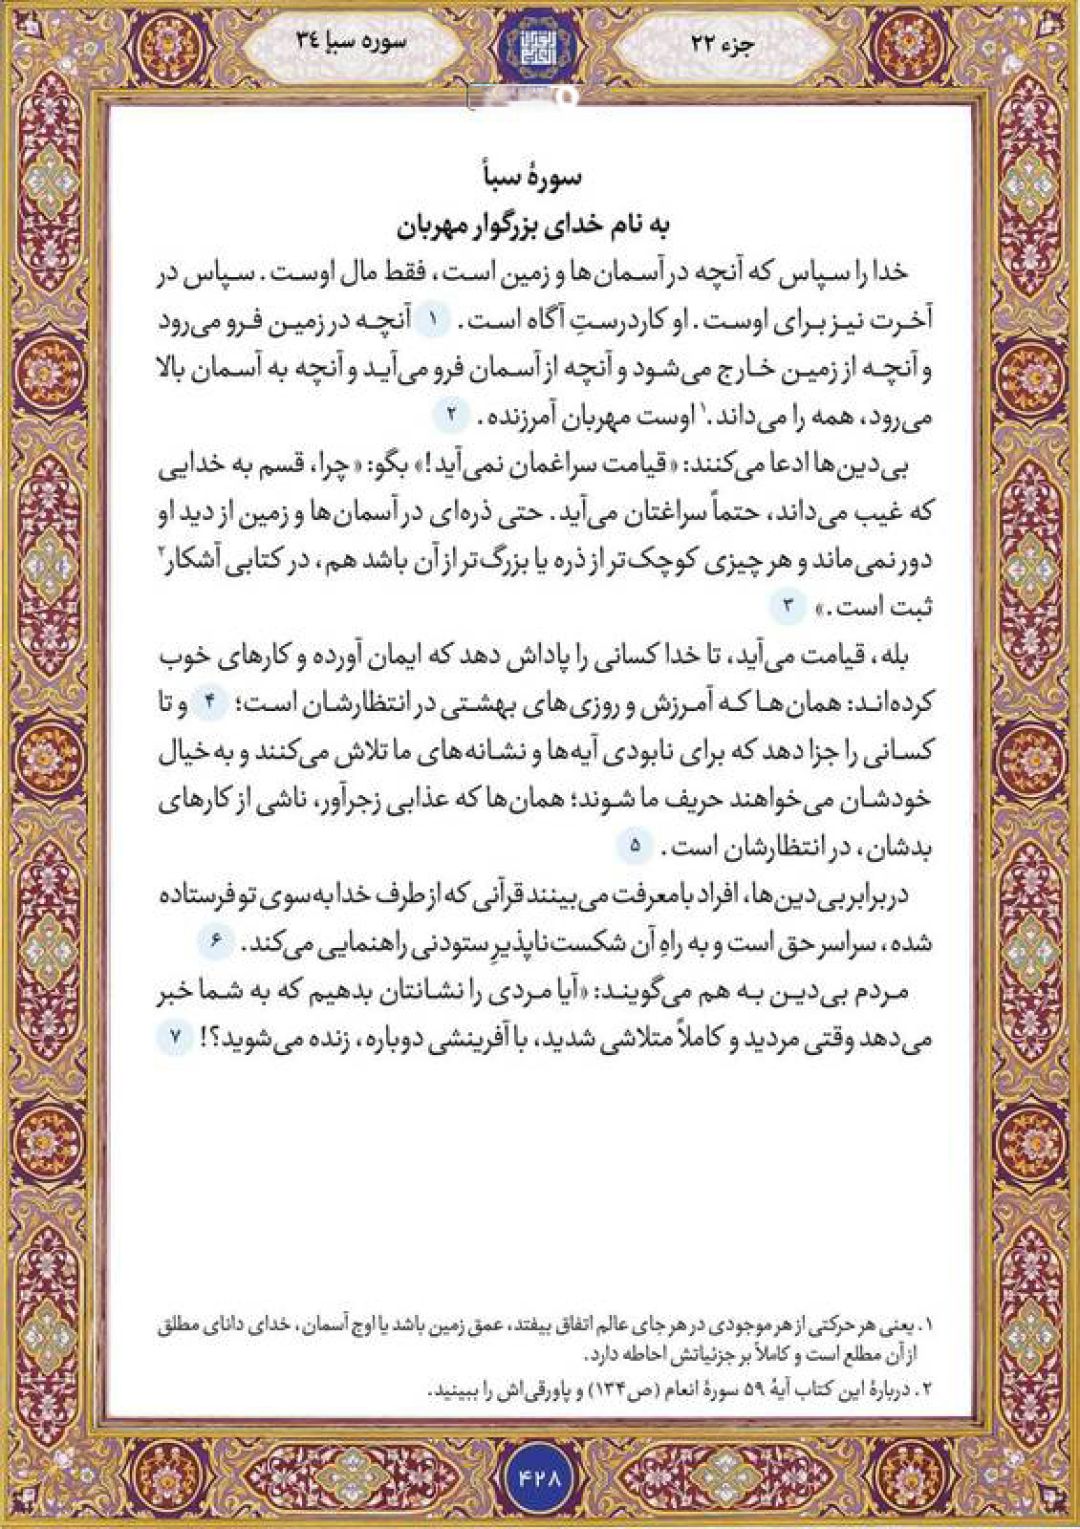 جزء ۲۲
سوره سبإ ۳٤
سورهٔ سبأ
به نام خدای بزرگوار مهربان
خدا را سپاس که آنچه در آسمان‌ها و زمین است، فقط مال اوست. سپاس در
آخرت نیز برای اوست. او کاردرستِ آگاه است. ۱ آنچه در زمین فرو می‌رود
و آنچه از زمین خارج می‌شود و آنچه از آسمان فرو می‌آید و آنچه به آسمان بالا
می‌رود، همه را می‌داند.۱ اوست مهربان آمرزنده. ۲
بی‌دین‌ها ادعا می‌کنند: «قیامت سراغمان نمی‌آید!» بگو: «چرا، قسم به خدایی
که غیب می‌داند، حتماً سراغتان می‌آید. حتی ذره‌ای در آسمان‌ها و زمین از دید او
دور نمی‌ماند و هر چیزی کوچک‌تر از ذره یا بزرگ‌تر از آن باشد هم، در کتابی آشکار۲
ثبت است.» ۳
بله، قیامت می‌آید، تا خدا کسانی را پاداش دهد که ایمان آورده و کارهای خوب
کرده‌اند: همان‌ها که آمرزش و روزی‌های بهشتی در انتظارشان است؛ ۴ و تا
کسانی را جزا دهد که برای نابودی آیه‌ها و نشانه‌های ما تلاش می‌کنند و به خیال
خودشان می‌خواهند حریف ما شوند؛ همان‌ها که عذابی زجرآور، ناشی از کارهای
بدشان، در انتظارشان است. ۵
در برابر بی‌دین‌ها، افراد بامعرفت می‌بینند قرآنی که از طرف خدا به‌سوی تو فرستاده
شده، سراسر حق است و به راهِ آن شکست‌ناپذیرِ ستودنی راهنمایی می‌کند. ۶
مردم بی‌دین به هم می‌گویند: «آیا مردی را نشانتان بدهیم که به شما خبر
می‌دهد وقتی مردید و کاملاً متلاشی شدید، با آفرینشی دوباره، زنده می‌شوید؟! ۷
۱. یعنی هر حرکتی از هر موجودی در هر جای عالم اتفاق بیفتد، عمق زمین باشد یا اوج آسمان، خدای دانای مطلق
از آن مطلع است و کاملاً بر جزئیاتش احاطه دارد.
۲. دربارهٔ این کتاب آیهٔ ۵۹ سورهٔ انعام (ص۱۳۴) و پاورقی‌اش را ببینید.
۴۲۸